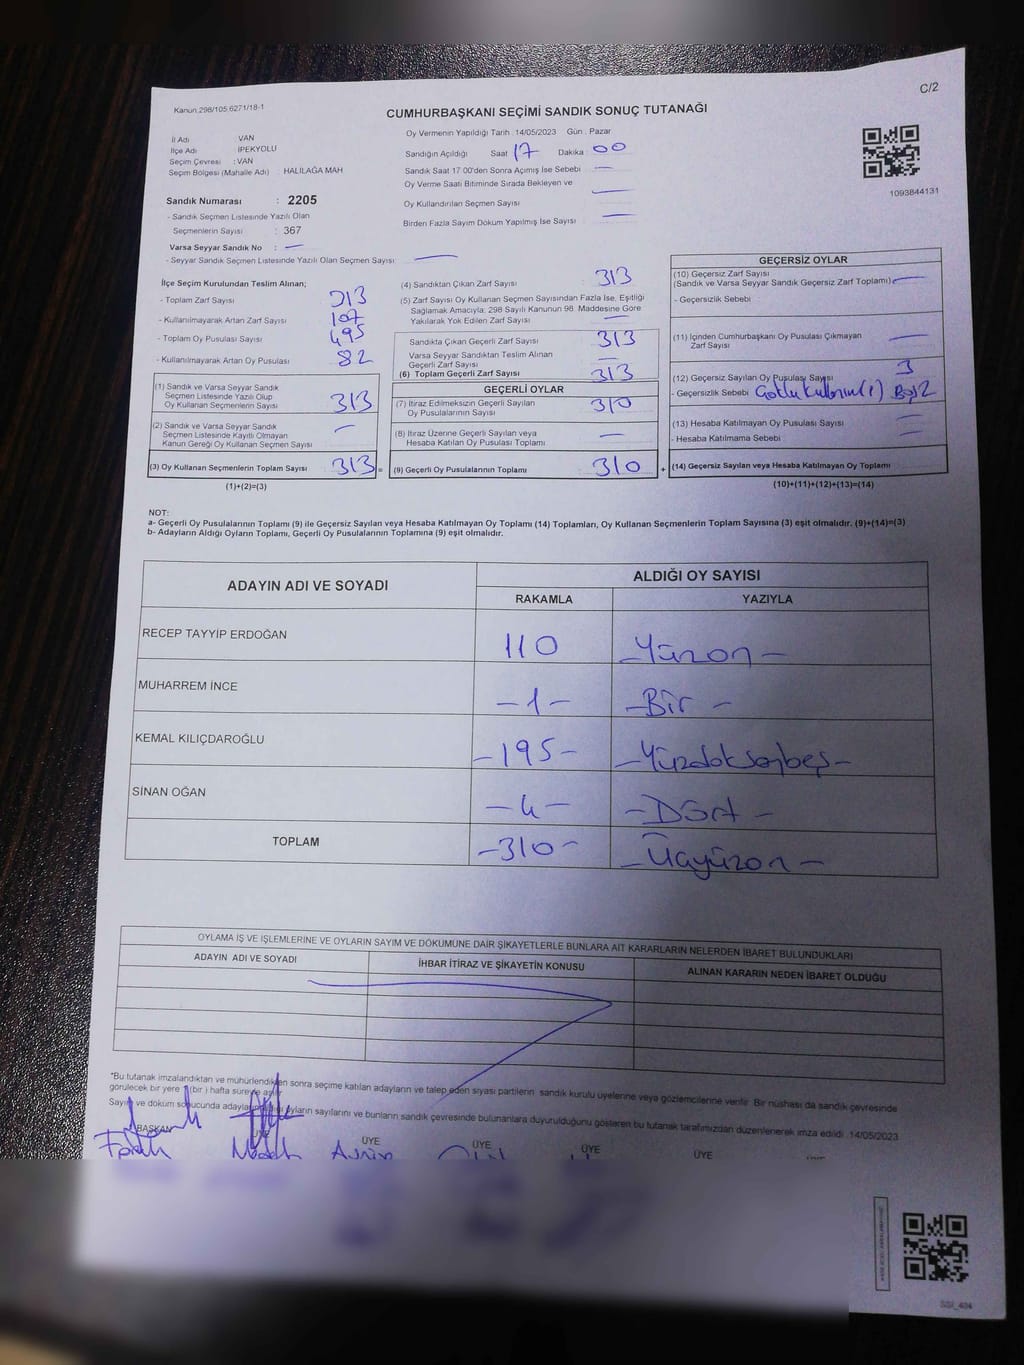 C/2
Kanun 298/105,6271/18-1
CUMHURBAŞKANI SEÇİMİ SANDIK SONUÇ TUTANAĞI
İl Adı VAN
İlçe Adı İPEKYOLU
Seçim Çevresi : VAN
Seçim Bölgesi (Mahalle Adı) HALİLAĞA MAH
Oy Vermenin Yapıldığı Tarih : 14/05/2023 Gün : Pazar
Sandığın Açıldığı Saat 17 Dakika 00
Sandık Saat 17 00'den Sonra Açımış İse Sebebi —
Oy Verme Saati Bitiminde Sırada Bekleyen ve
Oy Kullandırılan Seçmen Sayısı —
Birden Fazla Sayım Döküm Yapılmış İse Sayısı —
1093844131
Sandık Numarası : 2205
- Sandık Seçmen Listesinde Yazılı Olan
Seçmenlerin Sayısı : 367
Varsa Seyyar Sandık No : —
- Seyyar Sandık Seçmen Listesinde Yazılı Olan Seçmen Sayısı: —
İlçe Seçim Kurulundan Teslim Alınan;
- Toplam Zarf Sayısı
- Kullanılmayarak Artan Zarf Sayısı 107
- Toplam Oy Pusulası Sayısı 495
- Kullanılmayarak Artan Oy Pusulası 82
(1) Sandık ve Varsa Seyyar Sandık
Seçmen Listesinde Yazılı Olup
Oy Kullanan Seçmenlerin Sayısı 313
(2) Sandık ve Varsa Seyyar Sandık
Seçmen Listesinde Kayıtlı Olmayan
Kanun Gereği Oy Kullanan Seçmen Sayısı —
(3) Oy Kullanan Seçmenlerin Toplam Sayısı 313 =
(1)+(2)=(3)
(4) Sandıktan Çıkan Zarf Sayısı 313
(5) Zarf Sayısı Oy Kullanan Seçmen Sayısından Fazla İse, Eşitliği
Sağlamak Amacıyla; 298 Sayılı Kanunun 98. Maddesine Göre
Yakılarak Yok Edilen Zarf Sayısı —
Sandıkta Çıkan Geçerli Zarf Sayısı 313
Varsa Seyyar Sandıktan Teslim Alınan
Geçerli Zarf Sayısı —
(6) Toplam Geçerli Zarf Sayısı 313
GEÇERLİ OYLAR
(7) İtiraz Edilmeksizin Geçerli Sayılan
Oy Pusulalarının Sayısı 310
(8) İtiraz Üzerine Geçerli Sayılan veya
Hesaba Katılan Oy Pusulası Toplamı —
(9) Geçerli Oy Pusulalarının Toplamı 310 +
GEÇERSİZ OYLAR
(10) Geçersiz Zarf Sayısı
(Sandık ve Varsa Seyyar Sandık Geçersiz Zarf Toplamı) —
- Geçersizlik Sebebi
(11) İçinden Cumhurbaşkanı Oy Pusulası Çıkmayan
Zarf Sayısı —
(12) Geçersiz Sayılan Oy Pusulası Sayısı 3
- Geçersizlik Sebebi
(13) Hesaba Katılmayan Oy Pusulası Sayısı —
- Hesaba Katılmama Sebebi —
(14) Geçersiz Sayılan veya Hesaba Katılmayan Oy Toplamı
(10)+(11)+(12)+(13)=(14)
NOT:
a- Geçerli Oy Pusulalarının Toplamı (9) ile Geçersiz Sayılan veya Hesaba Katılmayan Oy Toplamı (14) Toplamları, Oy Kullanan Seçmenlerin Toplam Sayısına (3) eşit olmalıdır. (9)+(14)=(3)
b- Adayların Aldığı Oyların Toplamı, Geçerli Oy Pusulalarının Toplamına (9) eşit olmalıdır.
ADAYIN ADI VE SOYADI ALDIĞI OY SAYISI
RAKAMLA YAZIYLA
RECEP TAYYİP ERDOĞAN 110 –Yüzon–
MUHARREM İNCE –1– –Bir–
KEMAL KILIÇDAROĞLU –195– –Yüzdoksanbeş–
SİNAN OĞAN –4– –Dört–
TOPLAM –310– –Üçyüzon–
OYLAMA İŞ VE İŞLEMLERİNE VE OYLARIN SAYIM VE DÖKÜMÜNE DAİR ŞİKAYETLERLE BUNLARA AİT KARARLARIN NELERDEN İBARET BULUNDUKLARI
ADAYIN ADI VE SOYADI İHBAR İTİRAZ VE ŞİKAYETİN KONUSU ALINAN KARARIN NEDEN İBARET OLDUĞU
*Bu tutanak imzalandıktan ve mühürlendikten sonra seçime katılan adayların ve talep eden siyasi partilerin sandık kurulu üyelerine veya gözlemcilerine verilir. Bir nüshası da sandık çevresinde
görülecek bir yere (bir) hafta süreyle asılır
Sayım ve döküm sonucunda adayların oyların sayılarını ve bunların sandık çevresinde bulunanlara duyurulduğunu gösteren bu tutanak tarafımızdan düzenlenerek imza edildi. 14/05/2023
BAŞKAN ÜYE ÜYE ÜYE ÜYE ÜYE